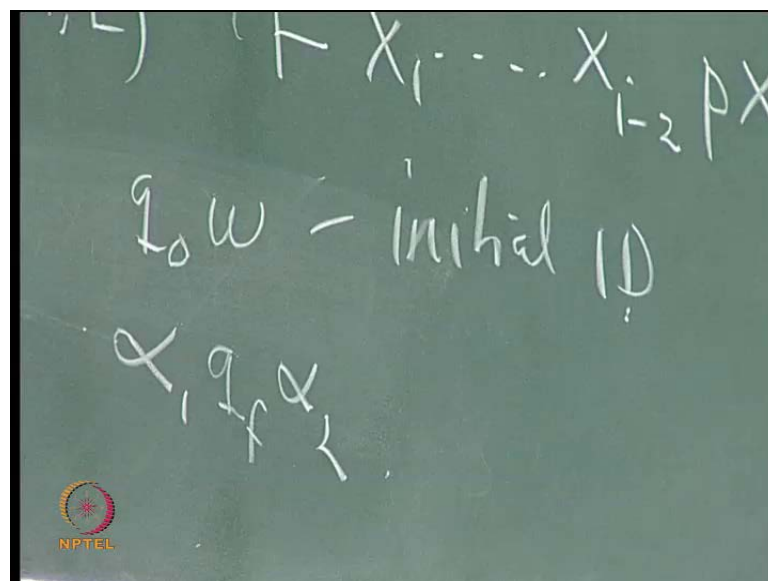 , L) ⊢ X₁ ---- Xᵢ₋₂ p X
q₀ w - initial ID
α₁ q_f α₂ .
NPTEL